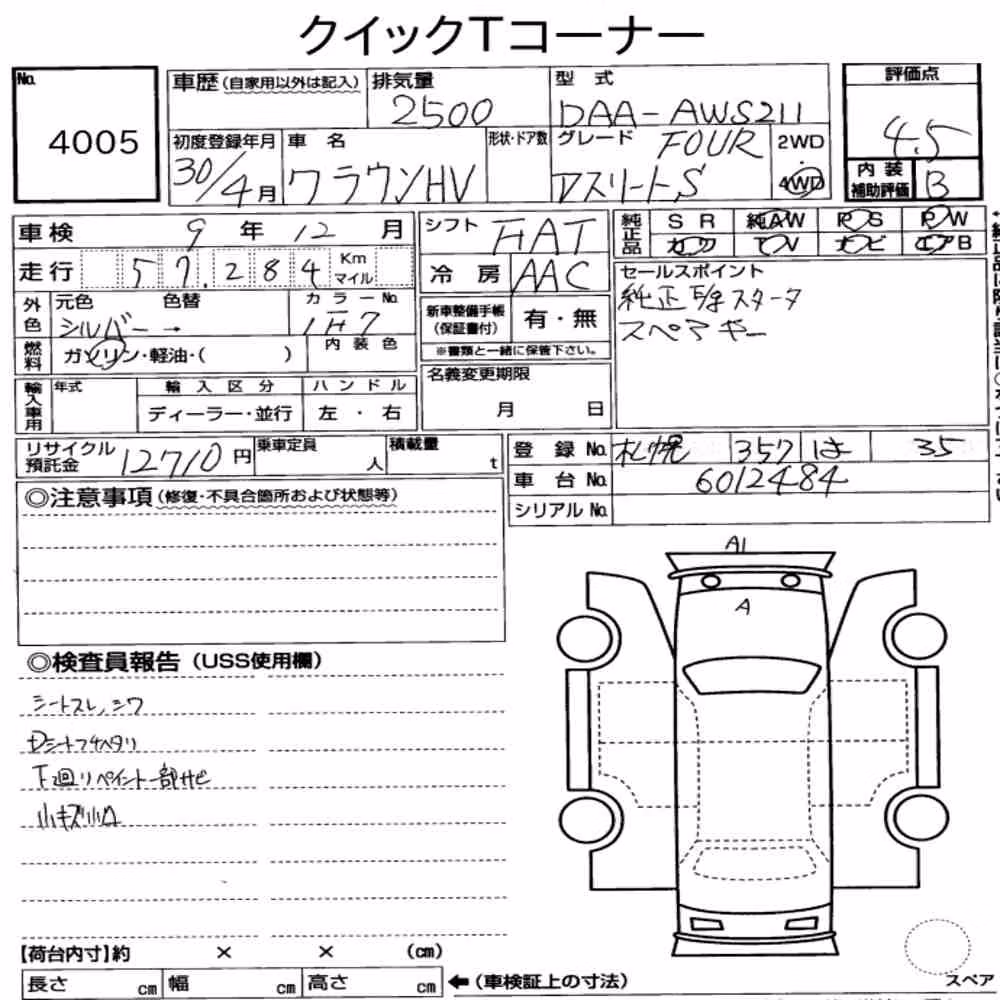 クイックTコーナー
No. 4005
車歴(自家用以外は記入) 排気量 2500 型式 DAA-AWS211
評価点 4.5
初度登録年月 30/4月 車名 クラウンHV 形状・ドア数 グレード FOUR アスリートS 2WD・4WD
内装補助評価 B
車検 9年12月
走行 57,284 Km マイル
シフト FAT
冷房 AAC
純正品 SR 純AW PS PW
カワ TV ナビ エアB
外色 元色 シルバー → 色替 カラーNo. 1H7
新車整備手帳(保証書付) 有・無
※書類と一緒に保管下さい。
セールスポイント
純正Eg.スタータ
スペアキー
燃料 ガソリン・軽油・( ) 内装色
輸入車用 年式 輸入区分 ハンドル
ディーラー・並行 左・右
名義変更期限
月 日
リサイクル預託金 12710円 乗車定員 人 積載量 t
登録No. 札幌 357 は 35
車台No. 6012484
シリアルNo.
◎注意事項(修復・不具合箇所および状態等)
A1
A
◎検査員報告(USS使用欄)
シートスレ、シワ
Dシートフチヘタリ
下廻リペイント一部サビ
小キズ小凹
【荷台内寸】約 × × (cm)
長さ cm 幅 cm 高さ cm ←(車検証上の寸法)
スペア